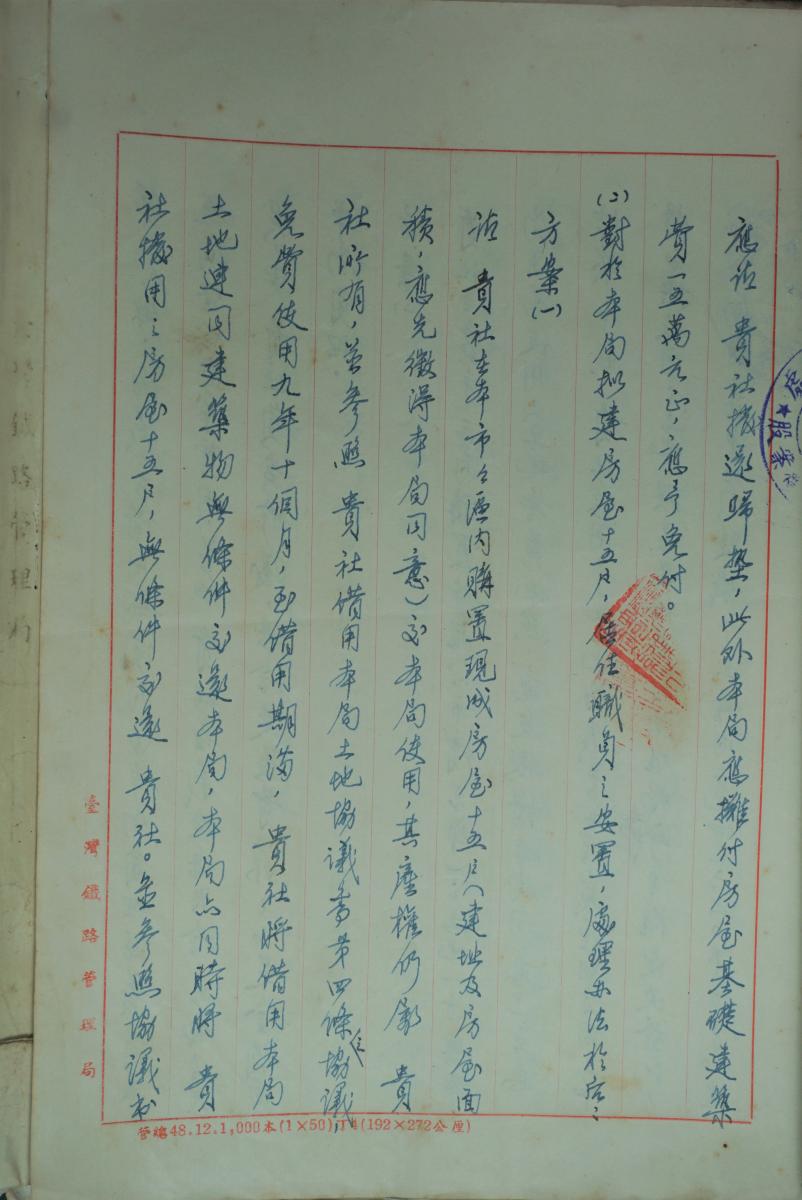 應請 貴社撥還歸墊,此外本局應攤付房屋基礎建築
費一五萬元正,應予免付。
(2)對於本局拟建房屋十五戶,居住職員之安置,處理办法於后:
方案(一)
請 貴社在本市之區內購置現成房屋十五戶(建地及房屋面
積,應先徵得本局同意)交本局使用,其產權仍屬 貴
社所有,並參照 貴社借用本局土地協議書第四條協議,
免費使用九年十個月,至借用期滿, 貴社將借用本局
土地連同建築物無條件交還本局,本局亦同時將 貴
社撥用之房屋十五戶,無條件交還 貴社。並參照協議書
臺灣鐵路管理局
管總48.12.1,000本(1×50)J14(192×272公厘)